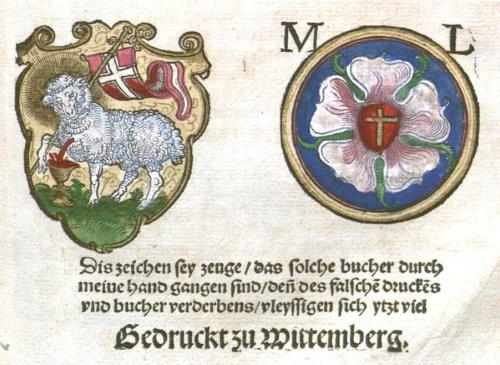 M L
Dis zeichen sey zeuge / das solche bucher durch
meine hand gangen sind / deñ des falschē druckēs
vnd bucher verderbens / vleyssigen sich ytzt viel
Gedruckt zu Wittemberg.